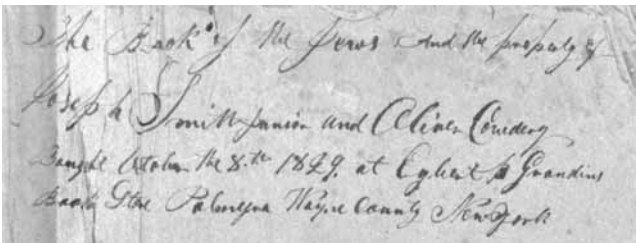 The Book of the Jews and the property of
Joseph Smith Junior and Oliver Cowdery
Bought October the 8th 1829. at Egbert B Grandins
Book Store Palmyra Wayne County New York